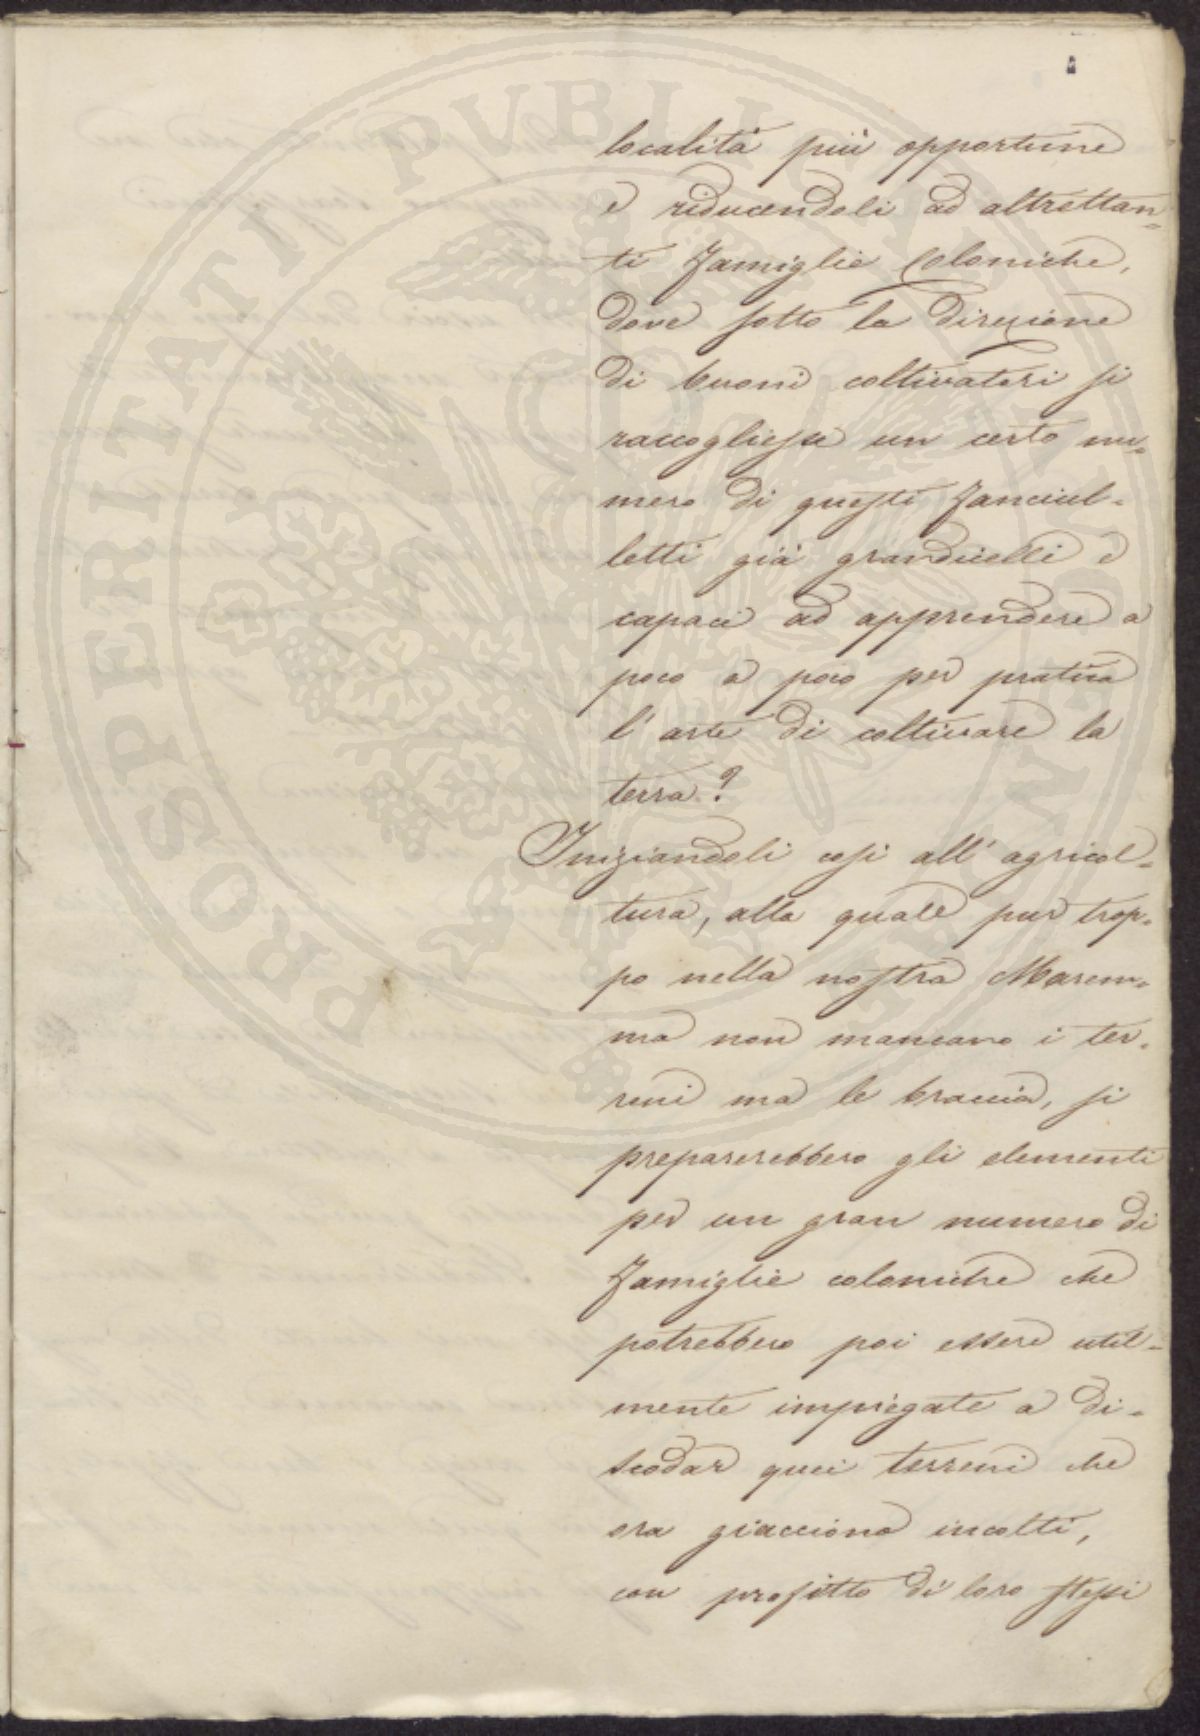 località più opportune
e riducendoli ad altrettan=
ti famiglie Coloniche,
dove sotto la direzione
di buoni coltivatori si
raccogliesse un certo nu=
mero di questi fanciul=
letti già grandicelli e
capaci ad apprendere a
poco a poco per pratica
l' arte di coltivare la
terra?
Iniziandoli così all' agricol=
tura, alla quale pur trop=
po nella nostra Marem=
ma non mancano i ter=
reni ma le braccia, si
preparerebbero gli elementi
per un gran numero di
famiglie coloniche che
potrebbero poi essere util=
mente impiegate a di=
scodar quei terreni che
ora giacciono incolti,
con profitto di loro stessi
PROSPERITATI PVBLICAE